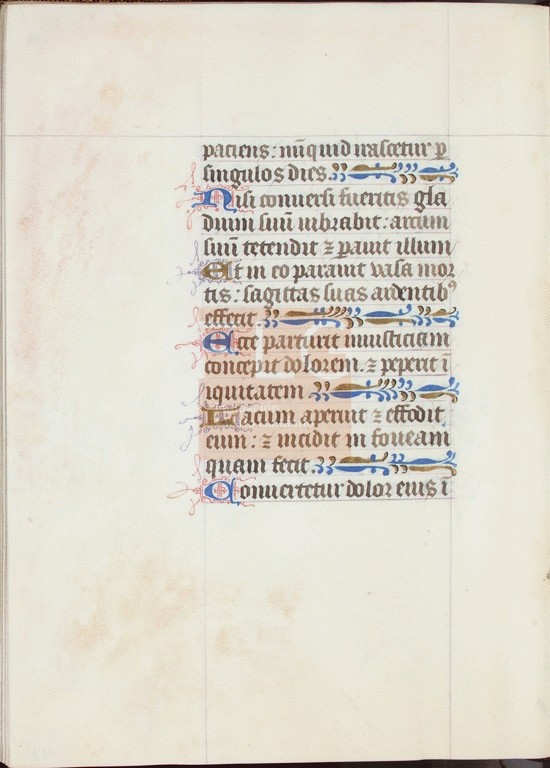 paciens: nūquid irascetur ꝑ
singulos dies.
Nisi conversi fueritis gla
dium suū vibrabit: arcum
suū tetendit ⁊ ꝑavit illum
Et in eo paravit vasa mor
tis: sagittas suas ardentibꝰ
effecit
Ecce parturit iniusticiam
concepit dolorem. ⁊ peperit ī
iquitatem
Lacum aperuit ⁊ effodit
eum: ⁊ incidit in foveam
quam fecit.
Convertetur dolor eius ī